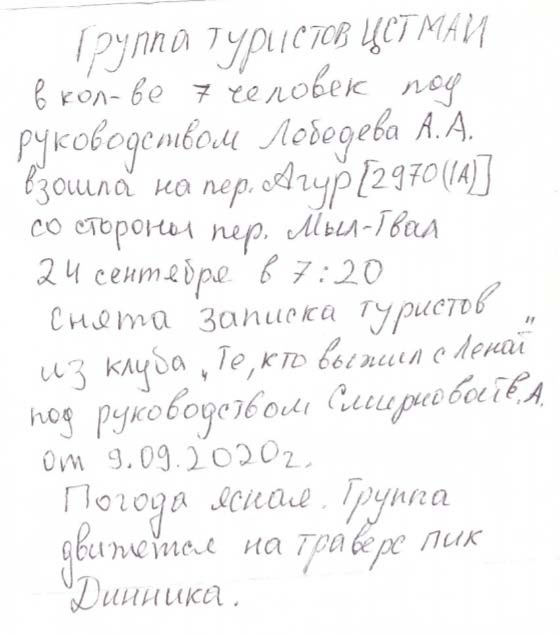 Группа туристов ЦСТМАИ
в кол-ве 7 человек под
руководством Лебедева А.А.
взошла на пер. Агур [2970(1А)]
со стороны пер. Мыл-Гвал
24 сентебре в 7:20
снята записка туристов
из клуба „Те, кто выжил с Леной"
под руководством Смирновой Е.А.
от 9.09.2020г.
Погода ясная. Группа
движется на траверс пик
Динника.